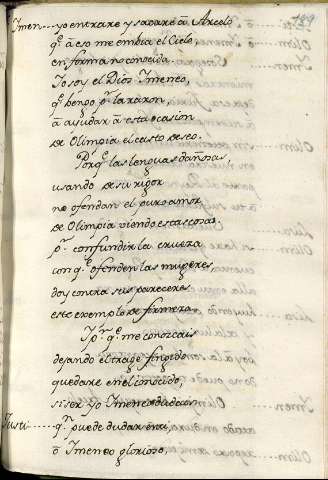 189
Imen---- yo entrare y sacare â Arcelo
q̃ â eso me embia el Cielo,
en forma no conocida.
Yo soy el Dios Imeneo,
q̃ bengo pʳ la raxon,
â aiudar â esta ocasion
de Olimpia el casto deseo.
Porq̃ las lenguas dañosas,
usando de su rigor
no ofendan el puro amor
de Olimpia viendo estas cosas.
pʳ confundir la crueza
con q̃ ofenden las mugeres
doy contra sus pareceres
este exemplo de firmeza.
Y pʳ q̃ me conozcais
dejando el trage fingido
quedare en el conocido,
si ser yo Imeneo dudais
Justi---- q̃ puede dudar en ti,
ô Imeneo glorioso,